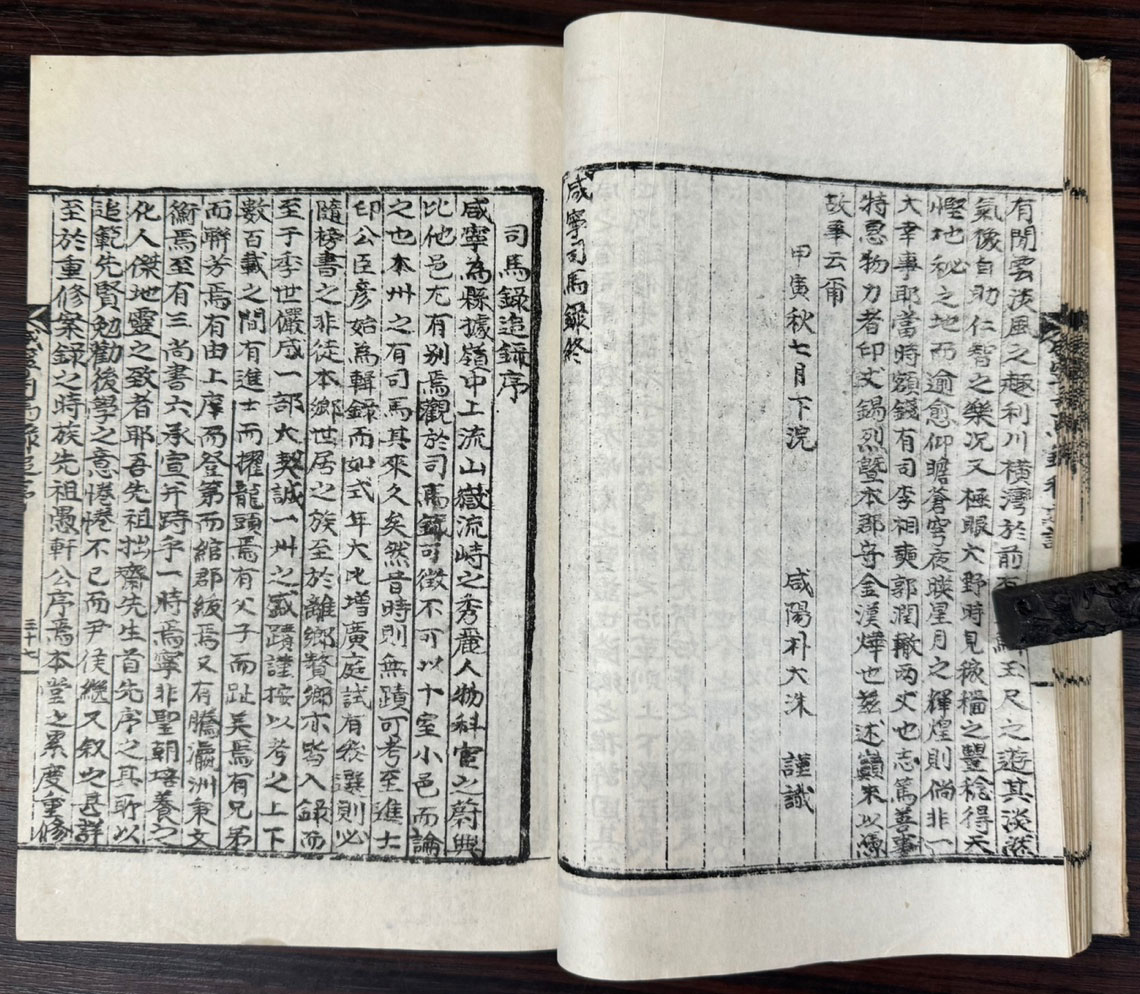 有閒雲淡風之趣利川橫灣於前 玉尺之遊其淡然
氣像自助仁智之樂況又極眼大野時見稼穡之豐稔得天
慳地秘之地而逾愈仰瞻蒼穹夜睽星月之輝煌則倘非一
大幸事耶當時額錢有司李相奭郭潤轍兩丈也志篤善事
特思物力者印丈錫烈曁本郡守金漢燁也玆述顚末以爲
故事云爾
甲寅秋七月下浣 咸陽朴大洙 謹識
咸寧司馬錄終
司馬錄追錄序
咸寧為縣據嶺中上流山嶽流峙之秀麗人物科宦之蔚興
比他邑尤有別焉觀於司馬錄可徵不可以十室小邑而論
之也本州之有司馬其來久矣然昔時則無蹟可考至進士
印公臣彥始為輯錄而如式年大比增廣庭試有發選則必
隨榜書之非徒本鄉世居之族至於離鄉贅鄉亦皆入錄而
至于季世儼成一部大契誠一州之盛蹟謹按以考之上下
數百載之間有進士而擢龍頭焉有父子而趾美焉有兄弟
而聯芳焉有由上庠而登第而綰郡紱焉又有騰瀛洲秉文
衡焉至有三尚書六承宣并時乎一時焉寧非聖朝培養之
化人傑地靈之致者耶吾先祖拙齋先生首先序之其所以
追範先賢勉勸後學之意惓惓不已而尹侯繼又叙之甚詳
至於重修案錄之時族先祖愚軒公序焉本堂之累度重修
三十七